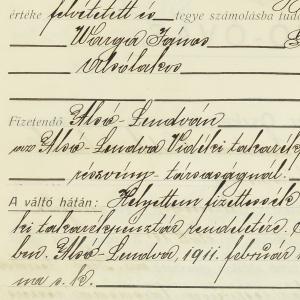 értéke felvétetett és tegye számolásba tud
Warga János
Alsólakos
Fizetendő Alsó-Lendván
az Alsó-Lendva Vidéki takarék
részvény-társaságnál.
A váltó hátán: Helyettem fizettessék
ki takarékpénztár rendeletére.
ben. Alsó-Lendva, 1911. február
ma s. k.